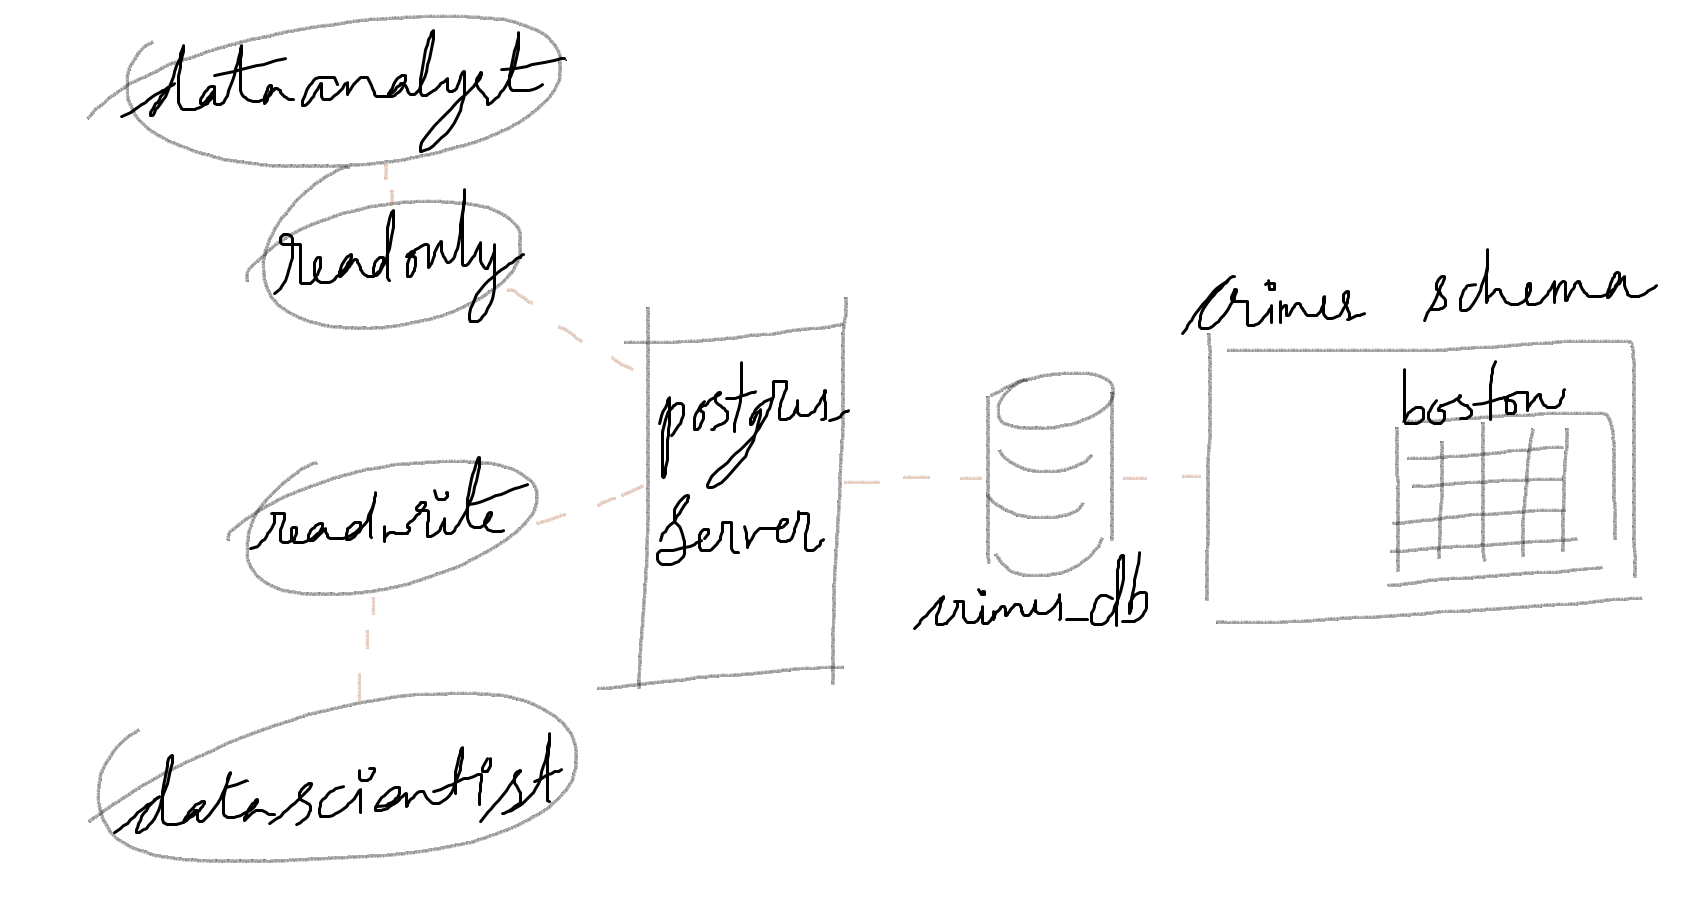 dataanalyst
readonly
readwrite
datascientist
postgres
Server
crimes_db
crimes schema
boston